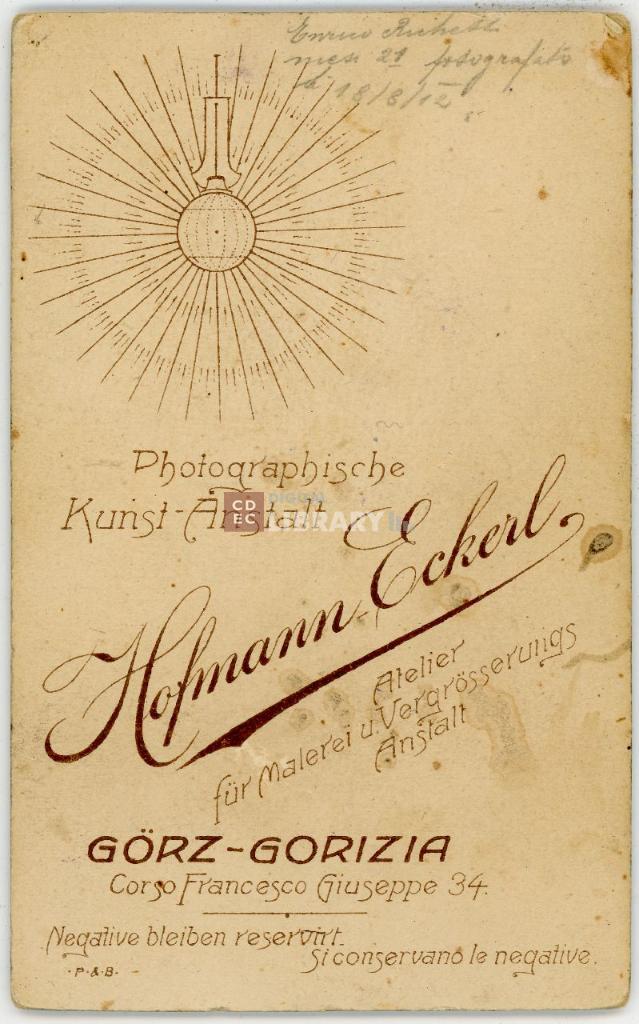 Enrico
mesi 21 fotografato
18/8/12
Photographische
Kunst-Anstalt
CD
EC
DIGITAL
LIBRARY
Hofmann-Eckerl
Atelier
für Malerei u. Vergrösserungs
Anstalt
GÖRZ-GORIZIA
Corso Francesco Giuseppe 34.
Negative bleiben reservirt.
Si conservano le negative.
·P·&·B·